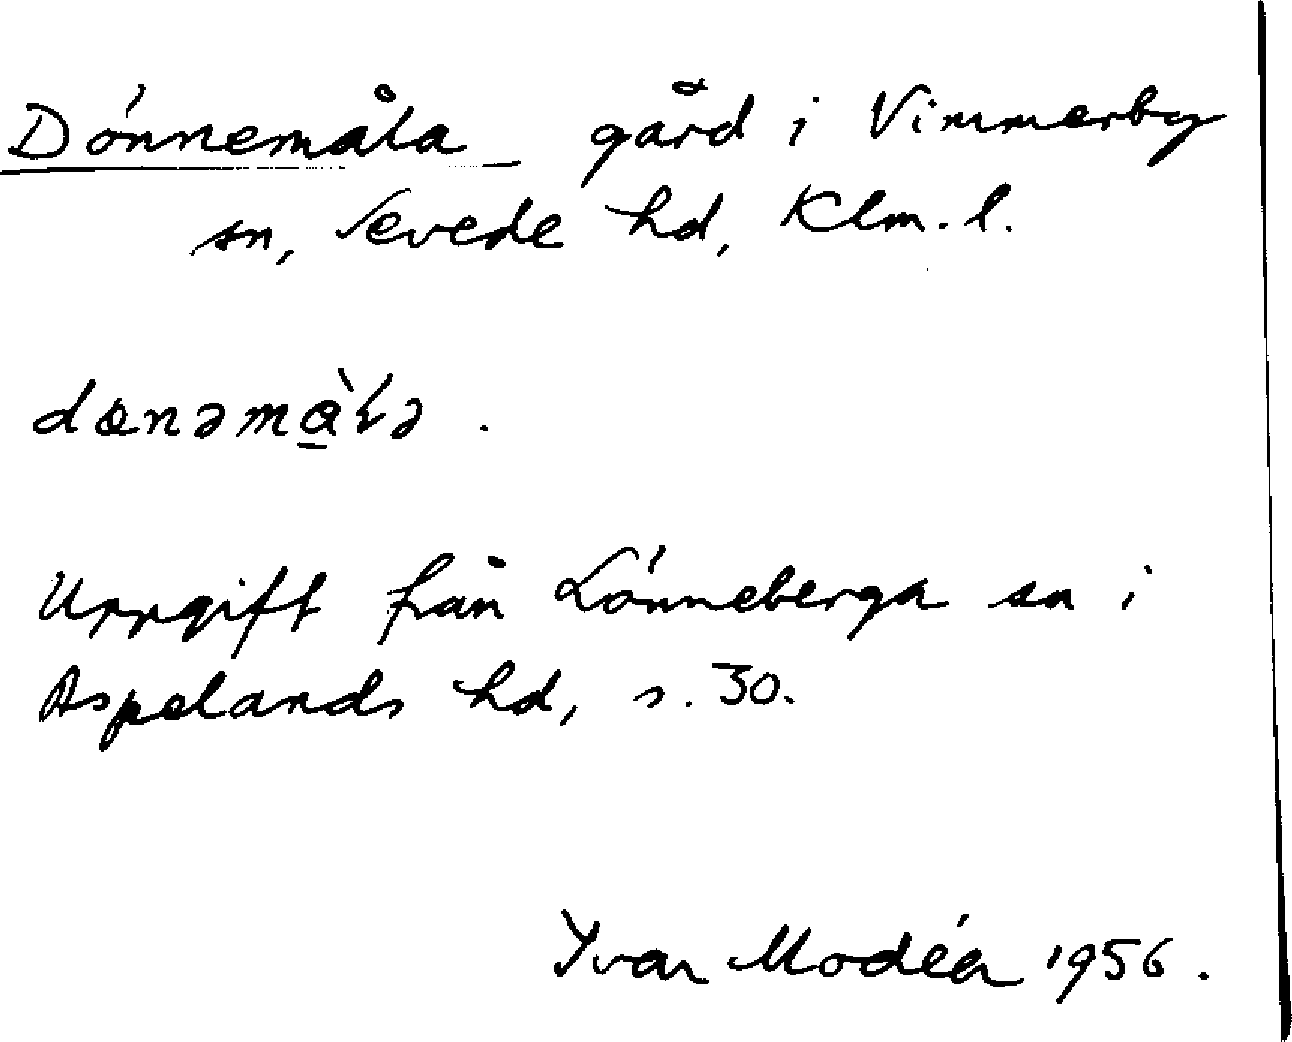 Dönnemåla gård i Vimmerby
sn, Sevede hd, Klm. l.
dœnəmɑ̠̀ɫə .
Uppgift från Lönneberga sn i
Aspelands hd, s. 30.
Yvar Modéer 1956.